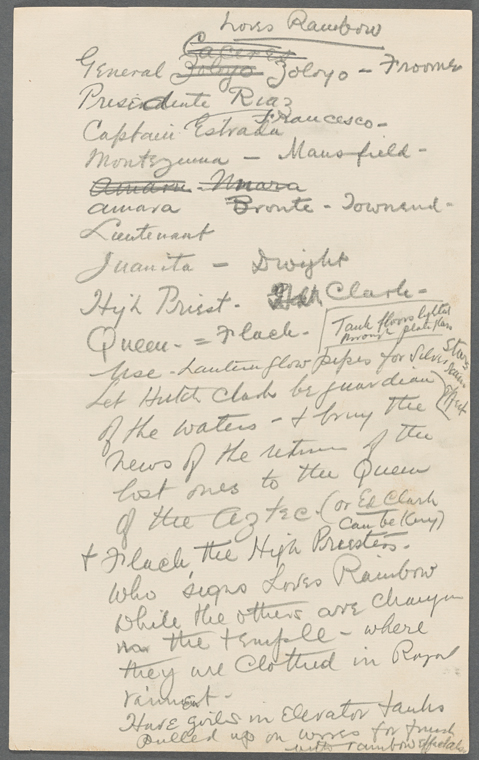 Loves Rainbow
Caceres
General Zoloyo Zoloyo - Froome
Presendente Riaz
Captain Estrada Francesco -
Montezuma - Mansfield -
Amara
amara Bronte - Townsend -
Lieutenant
Juanita - Dwight
High Priest - Clark -
Queen - = Flack -
Tank floors lighted
through plate glass
Use - Lantern glow pipes for Silver
Stars
effect
Let Hutch Clark be guardian
of the waters - & bring the
news of the return of the
lost ones to the Queen
of the Aztec - (or Ed Clark
can be King)
+ Flack, the High Priestess -
who signs Loves Rainbow
while the others are changin
the temple - where
they are clothed in Royal
raiment -
Have girls in Elevator tanks
Pulled up on wires for finish
with rainbow effects